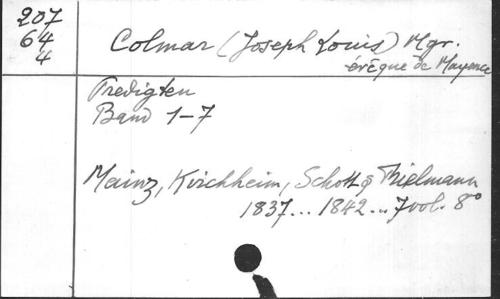 207
64
4
Colmar (Joseph Louis) Mgr.
évêque de Mayence
Predigten
Band 1-7
Mainz, Kirchheim, Schott & Thielmann
1837... 1842... 7 vol. 8°